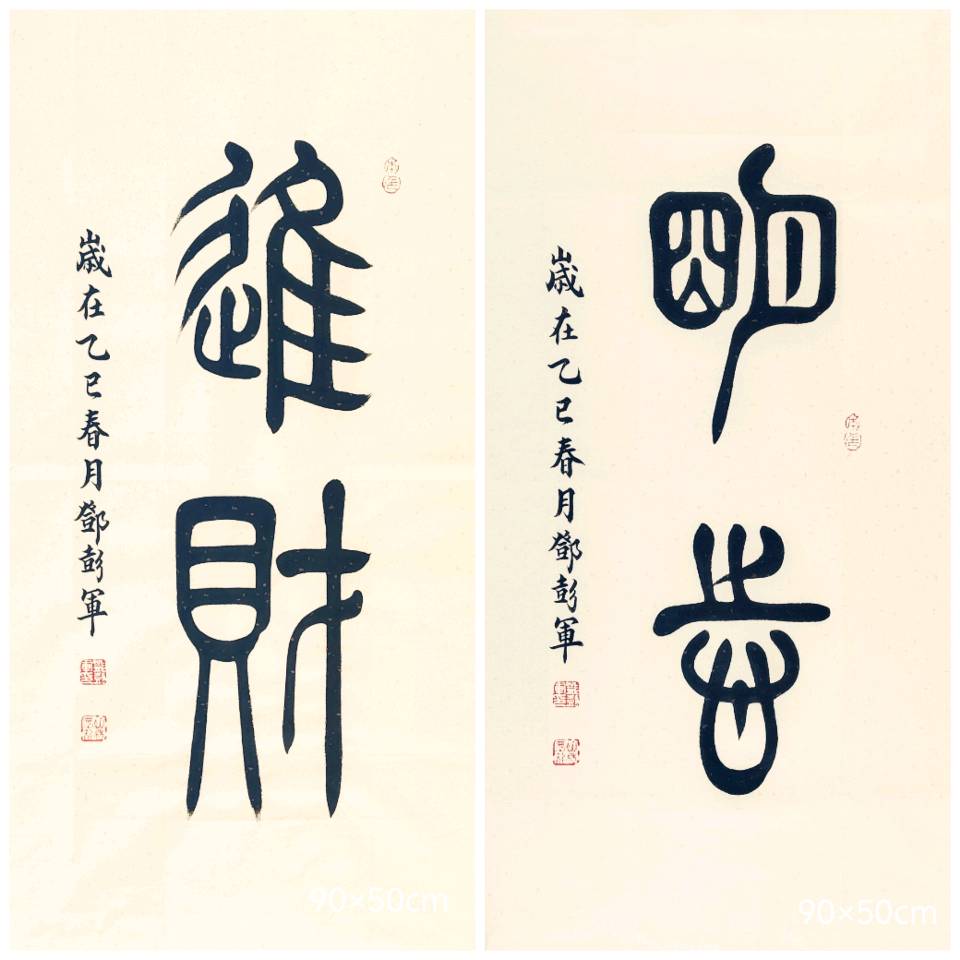 進財
嵗在乙巳春月鄧彭軍
90×50cm
明志
嵗在乙巳春月鄧彭軍
90×50cm